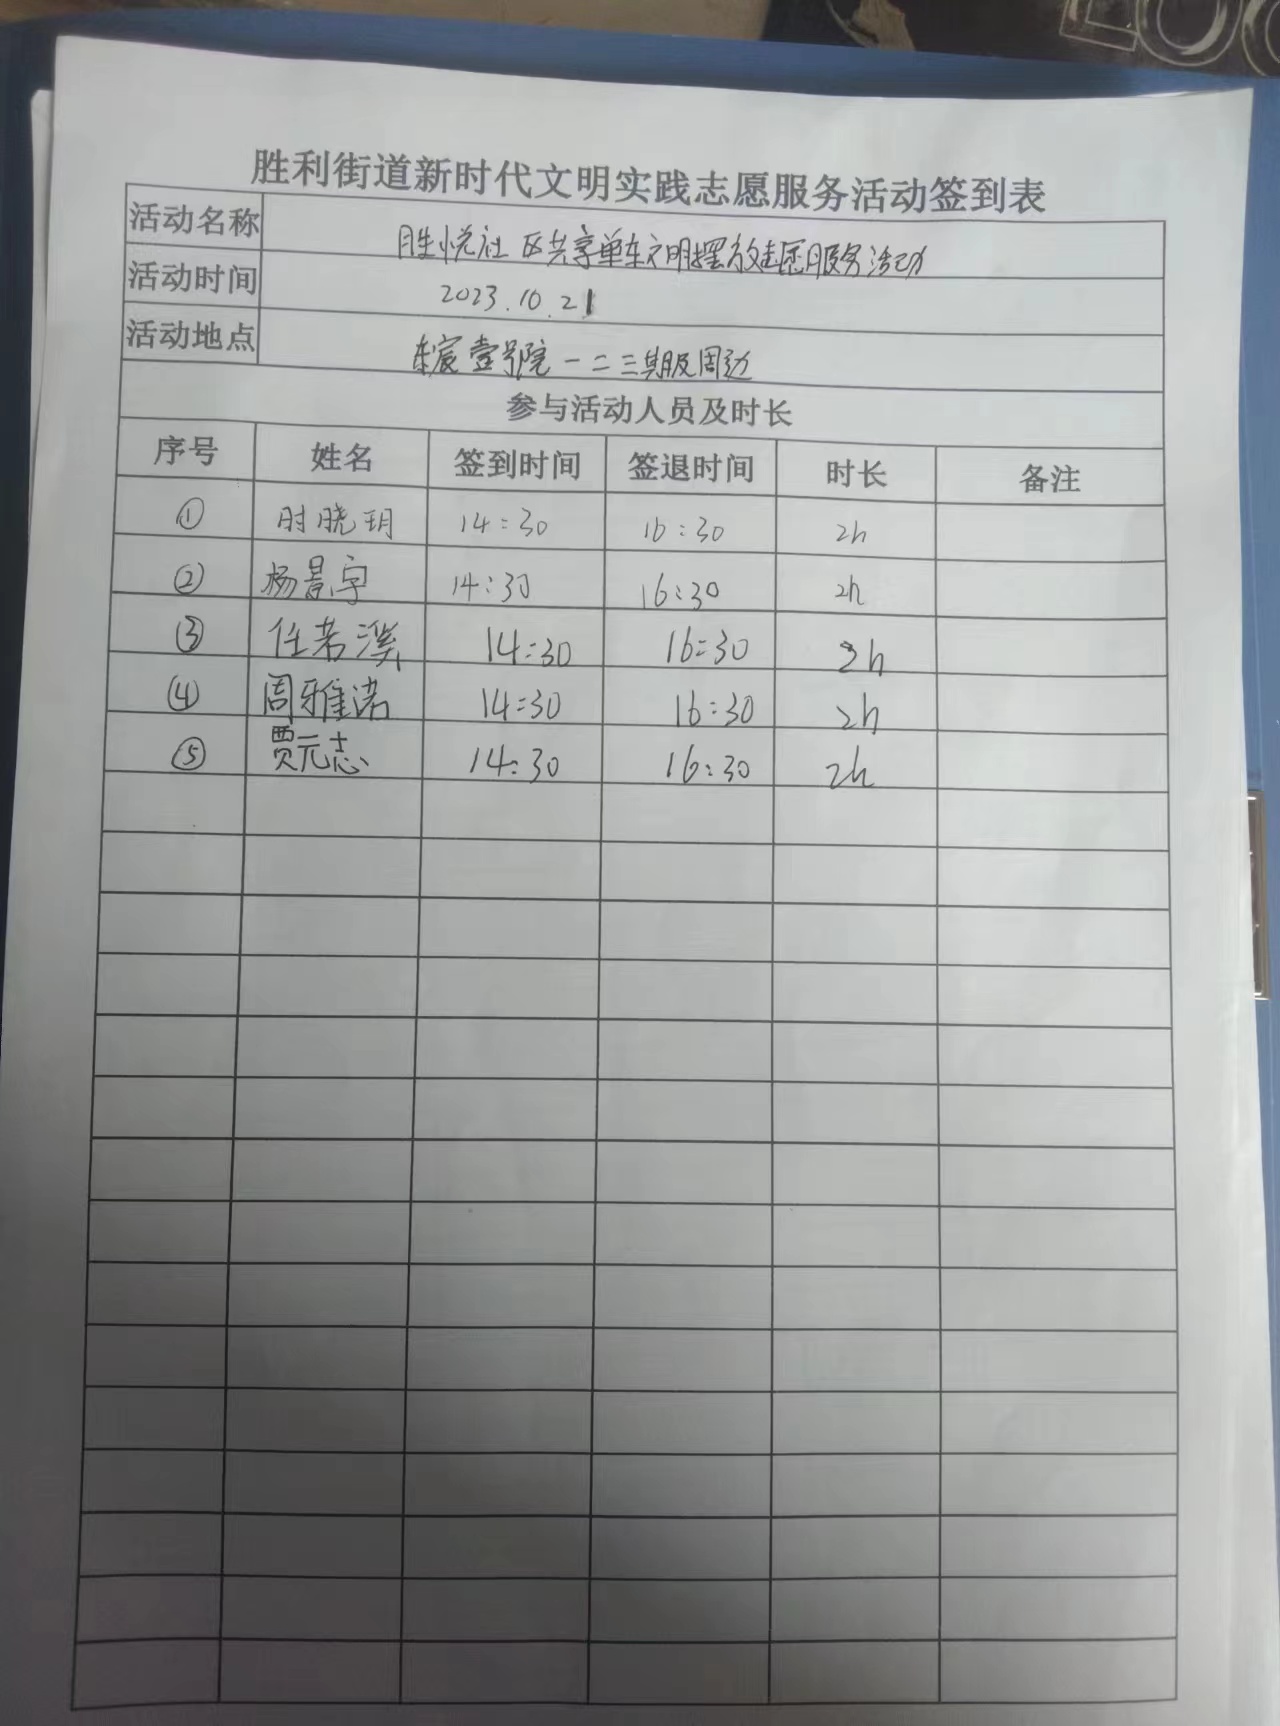 胜利街道新时代文明实践志愿服务活动签到表
活动名称 胜悦社区共享单车文明摆放志愿服务活动
活动时间 2023.10.21
活动地点 东宸壹号院一二三期及周边
参与活动人员及时长
序号 姓名 签到时间 签退时间 时长 备注
① 时晓玥 14:30 16:30 2h
② 杨景宇 14:30 16:30 2h
③ 任若溪 14:30 16:30 2h
④ 周雅诺 14:30 16:30 2h
⑤ 贾元志 14:30 16:30 2h